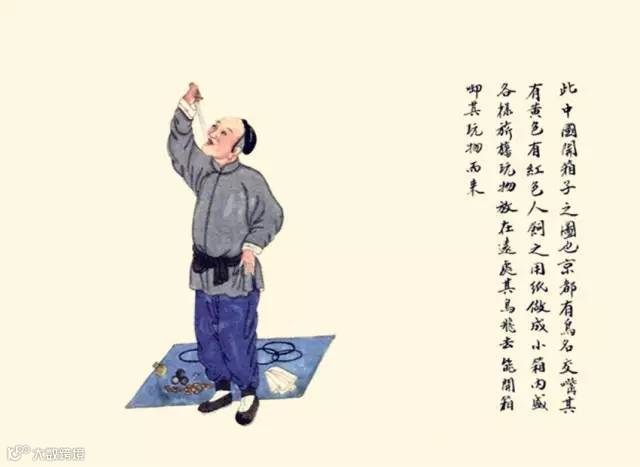 此中國開箱子之圖也京都有鳥名交嘴其
有黃色有紅色人飼之用紙做成小箱內盛
各樣旂旛玩物放在遠處其鳥飛去能開箱
啣其玩物而来
大数跨境